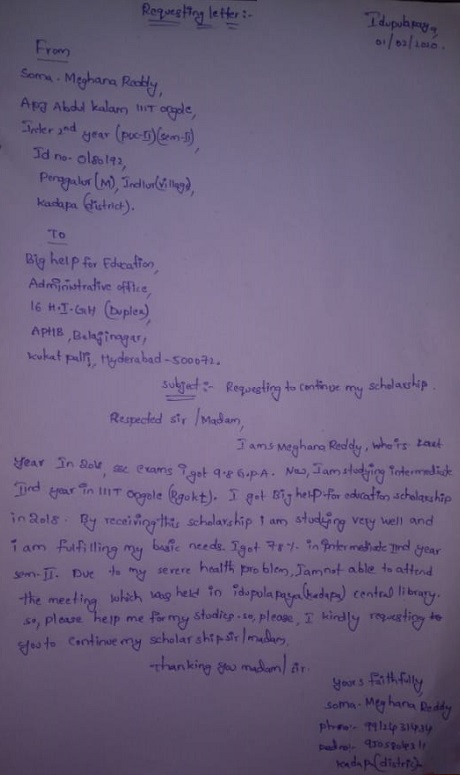 Requesting letter:-
Idupulapaya,
01/02/2020.
From
Soma. Meghana Reddy,
Apj Abdul Kalam IIIT ongole,
Inter 2nd year (puc-II)(sem-II),
Id no. O180192,
Penagalur (M), Indlur(village),
Kadapa (district).
To
Big help for Education,
Administrative office,
16 H.I.GH (Duplex),
APHB, Balajinagar,
Kukat pally, Hyderabad-500072.
Subject:- Requesting to continue my scholarship.
Respected sir /Madam,
I am S Meghana Reddy, who is Last
year In 2018, ssc exams i got 9.8 G.P.A. Now, I am studying intermediate
IInd year in IIIT Ongole (Rgukt). I got Big help for education scholarship
in 2018. By receiving this scholarship i am studying very well and
i am fulfilling my basic needs. I got 78% in intermediate IInd year
sem-II. Due to my severe health problem, I am not able to attend
the meeting which was held in idupulapaya(kadapa) central library.
so, please help me for my studies. so, please, I kindly requesting to
you to continue my scholar ship sir/madam.
Thanking you madam/ sir.
yours faithfully
soma. Meghana Reddy
phno:-
Kadapa(district)